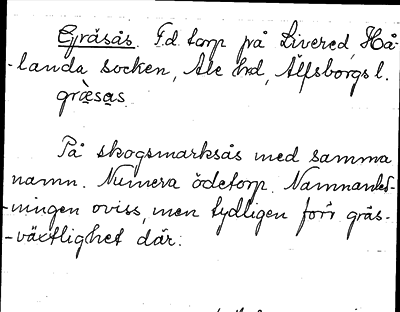 Gräsås. F.d. torp på Livered, Hå-
-landa socken, Ale hd, Älfsborgs l.
græ̀sas.
På skogsmarksås med samma
namn. Numera ödetorp. Namnanled-
-ningen oviss, men tydligen förr gräs-
-växtlighet där.